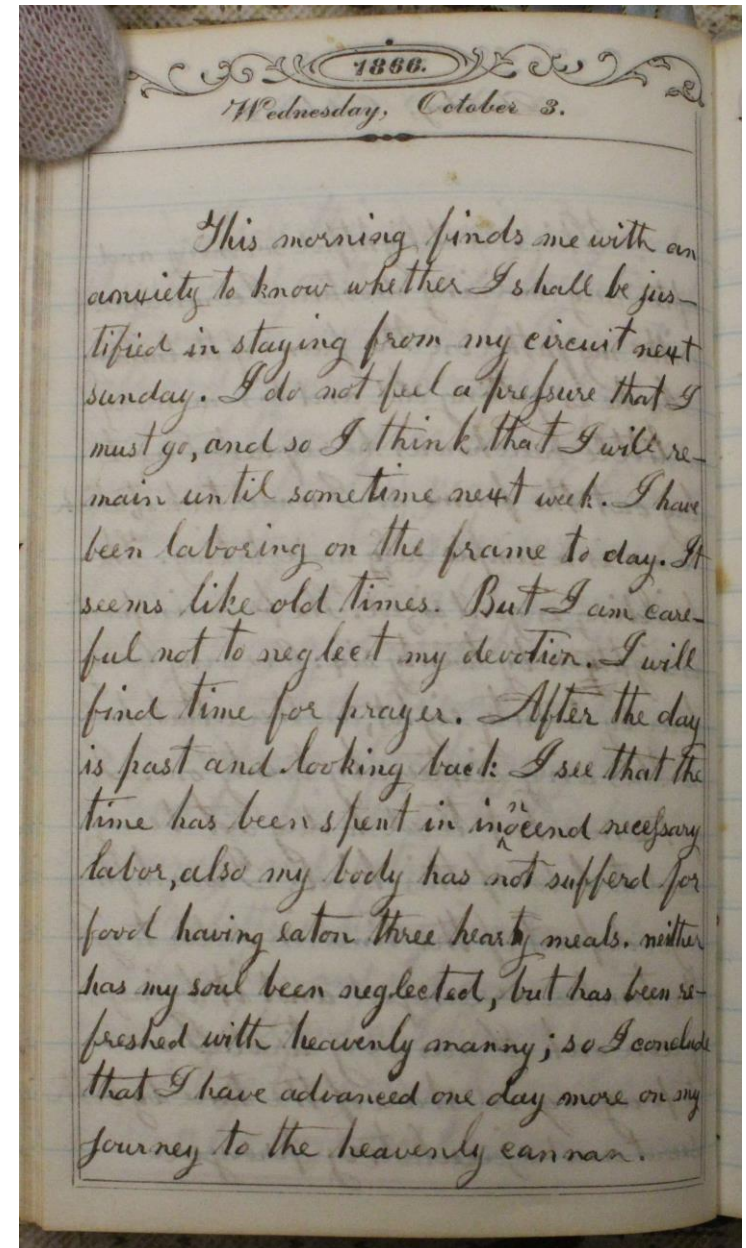 1866.
Wednesday, October 3.
This morning finds me with an
anxiety to know whether I shall be jus-
tified in staying from my circuit next
sunday. I do not feel a pressure that I
must go, and so I think that I will re-
main until sometime next week. I have
been laboring on the frame to day. It
seems like old times. But I am care-
ful not to neglect my devotion. I will
find time for prayer. After the day
is past and looking back I see that the
time has been spent in innocend necessary
labor, also my body has not sufferd for
food having eaton three hearty meals. neither
has my soul been neglected, but has been re-
freshed with heavenly manny; so I conclude
that I have advanced one day more on my
journey to the heavenly cannan.